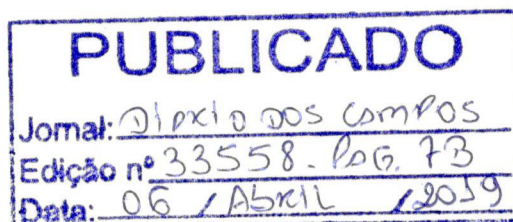 PUBLICADO
Jornal: Diário dos Campos
Edição nº 33558. PAG. 7B
Data: 06 / Abril / 2019